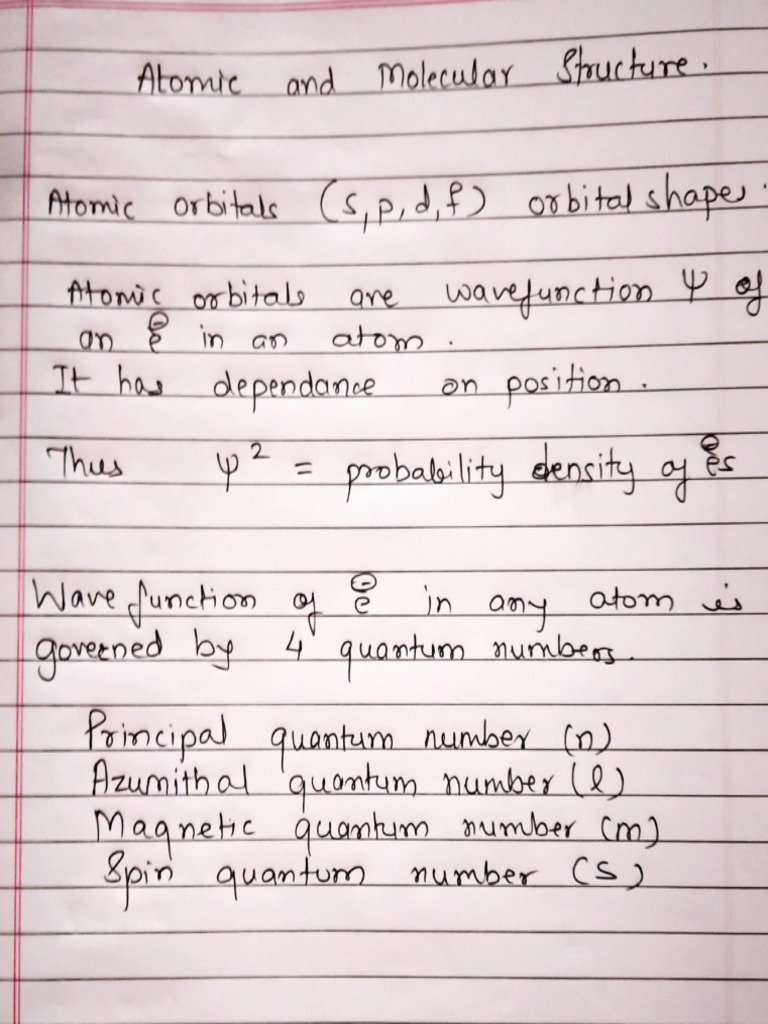 Atomic and Molecular Structure.
Atomic orbitals (s,p,d,f) orbital shapes.
Atomic orbitals are wavefunction ψ of
an e⊖ in an atom.
It has dependance on position.
Thus ψ² = probability density of e⊖s
Wave function of e⊖ in any atom is
governed by 4 quantum numbers.
Principal quantum number (n)
Azumithal quantum number (l)
Magnetic quantum number (m)
Spin quantum number (s)